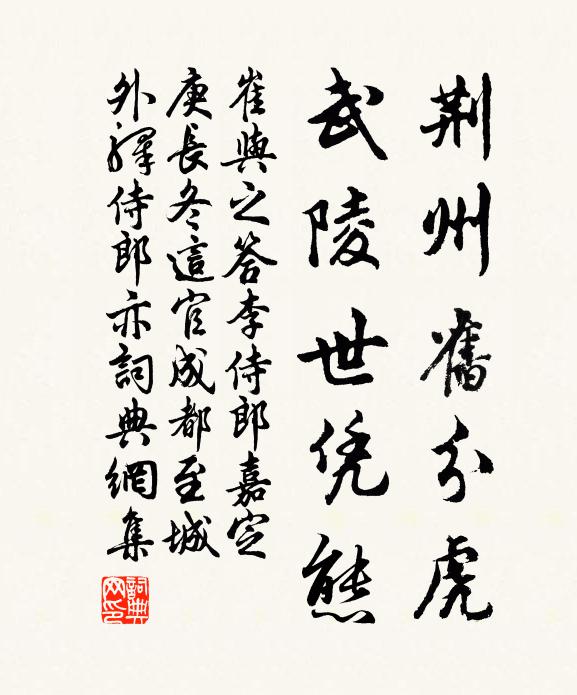 荆州舊分虎
武陵世凭熊
崔與之答李侍郎嘉定
庚長冬這官成都至城
外驛侍郎亦詞典網集
詞典網印